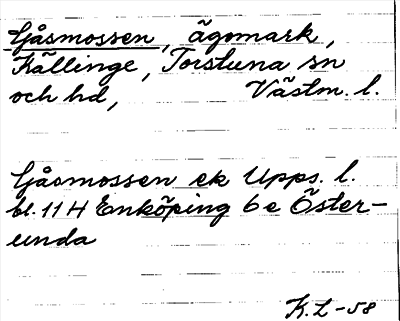 Gåsmossen, ägomark,
Källinge, Torstuna sn
och hd, Västm. l.
Gåsmossen ek Upps. l.
bl. 11 H Enköping 6 e Öster-
unda
K.L-58